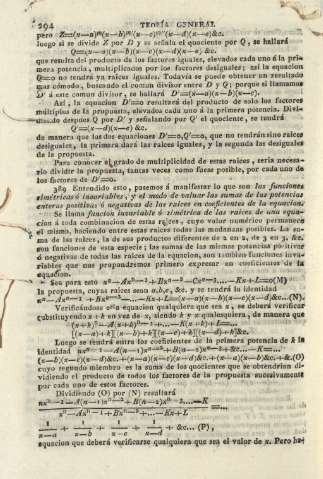 294 TEORÍA GENERAL
pero Z=(x—a)^m(x—b)^p(x—c)^q(x—d)(x—e)&c.
luego si se divide Z por D y se señala el quociente por Q, se hallará
Q=(x—a)(x—b)(x—c)(x—d)(x—e) &c.
que resulta del producto de los factores iguales, elevados cada uno á la pri-
mera potencia, multiplicados por los factores desiguales; así la equacion
Q=0 no tendrá ya raices iguales. Todavía se puede obtener un resultado
mas cómodo, buscando el comun divisor entre D y Q; porque si llamamos
D' á este comun divisor, se hallará D'=(x—a)(x—b)(x—c).
Así, la equacion D'=0 resultará del producto de solo los factores
multiplos de la propuesta, elevados cada uno á la primera potencia. Divi-
diendo despues Q por D' y señalando por Q' el quociente, se tendrá
Q'=(x—d)(x—e) &c.
de manera que las dos equaciones D'=0, Q'=0, que no tendrán sino raices
desiguales, la primera dará las raices iguales, y la segunda las desiguales
de la propuesta.
Para conocer el grado de multiplicidad de estas raices, seria necesa-
rio dividir la propuesta, tantas veces como fuese posible, por cada uno de
los factores de D'=0.
389 Entendido esto, pasemos á manifestar lo que son las funciones
simétricas ó invariables, y el modo de valuar las sumas de las potencias
enteras positivas ó negativas de las raices en coeficientes de la equacion.
Se llama funcion invariable ó simétrica de las raices de una equa-
cion á toda combinacion de estas raices, cuyo valor numérico permanece
el mismo, haciendo entre estas raices todas las mudanzas posibles. La su-
ma de las raices, la de sus productos diferentes de 2 en 2, de 3 en 3, &c.
son funciones de esta especie; las sumas de las mismas potencias positivas
ó negativas de todas las raices de la equacion, son tambien funciones inva-
riables que nos propondremos primero expresar en coeficientes de la
equacion.
Sea para esto
La propuesta, cuyas raices sean a,b,c, &c. y se tendrá la identidad
Verificándose esta equacion qualquiera que sea x, se deberá verificar
substituyendo x+k en vez de x, siendo k y x qualesquiera, de manera que
Luego se tendrá entre los coeficientes de la primera potencia de k la
identidad
cuyo segundo miembro es la suma de los quocientes que se obtendrian di-
vidiendo el producto de todos los factores de la propuesta sucesivamente
por cada uno de estos factores.
Dividiendo (O) por (N) resultará
equacion que deberá verificarse qualquiera que sea el valor de x. Pero ha-